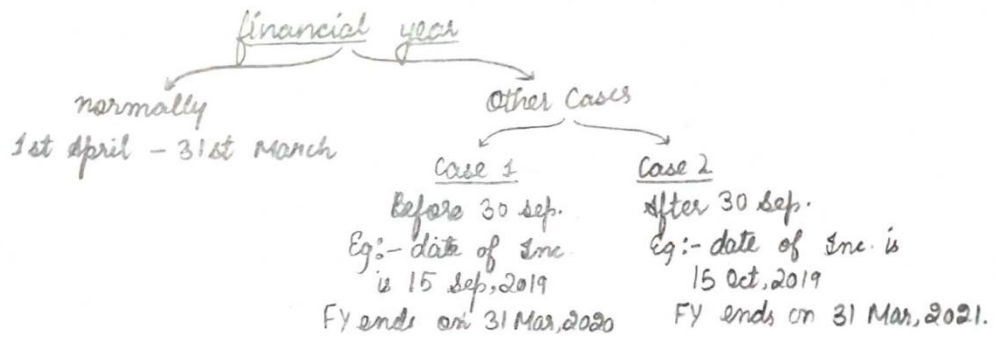 financial year
normally
1st April - 31st March
Other Cases
Case 1
Before 30 sep.
Eg:- date of Inc
is 15 Sep, 2019
FY ends on 31 Mar, 2020
Case 2
After 30 Sep.
Eg:- date of Inc. is
15 Oct, 2019
FY ends on 31 Mar, 2021.